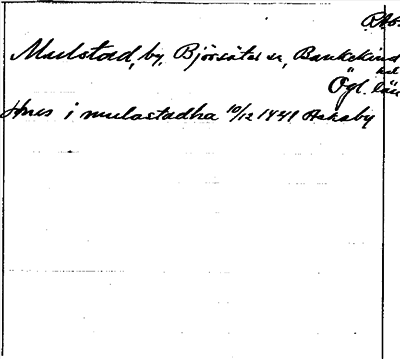 Mulstad, by, Björsäter sn, Bankekind
Ögl. län
i mulastadha 10/12 1441 Askaby